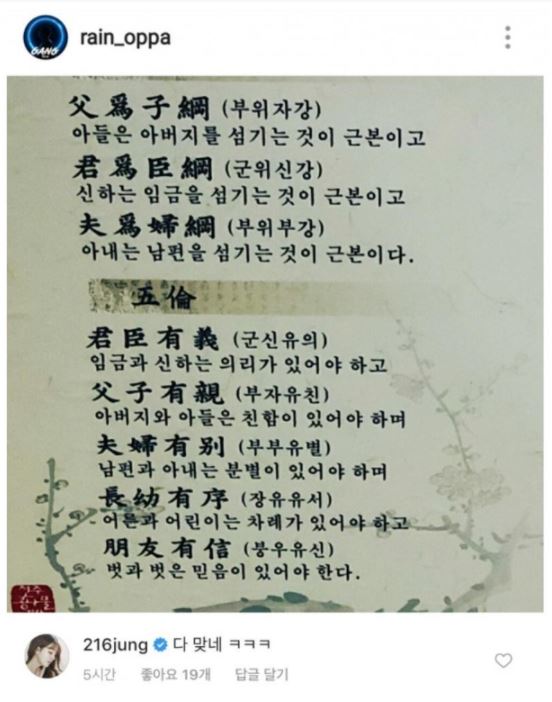 GANG
rain_oppa
父爲子綱 (부위자강)
아들은 아버지를 섬기는 것이 근본이고
君爲臣綱 (군위신강)
신하는 임금을 섬기는 것이 근본이고
夫爲婦綱 (부위부강)
아내는 남편을 섬기는 것이 근본이다.
五倫
君臣有義 (군신유의)
임금과 신하는 의리가 있어야 하고
父子有親 (부자유친)
아버지와 아들은 친함이 있어야 하며
夫婦有別 (부부유별)
남편과 아내는 분별이 있어야 하며
長幼有序 (장유유서)
어른과 어린이는 차례가 있어야 하고
朋友有信 (붕우유신)
벗과 벗은 믿음이 있어야 한다.
216jung 다 맞네 ㅋㅋㅋ
5시간 좋아요 19개 답글 달기